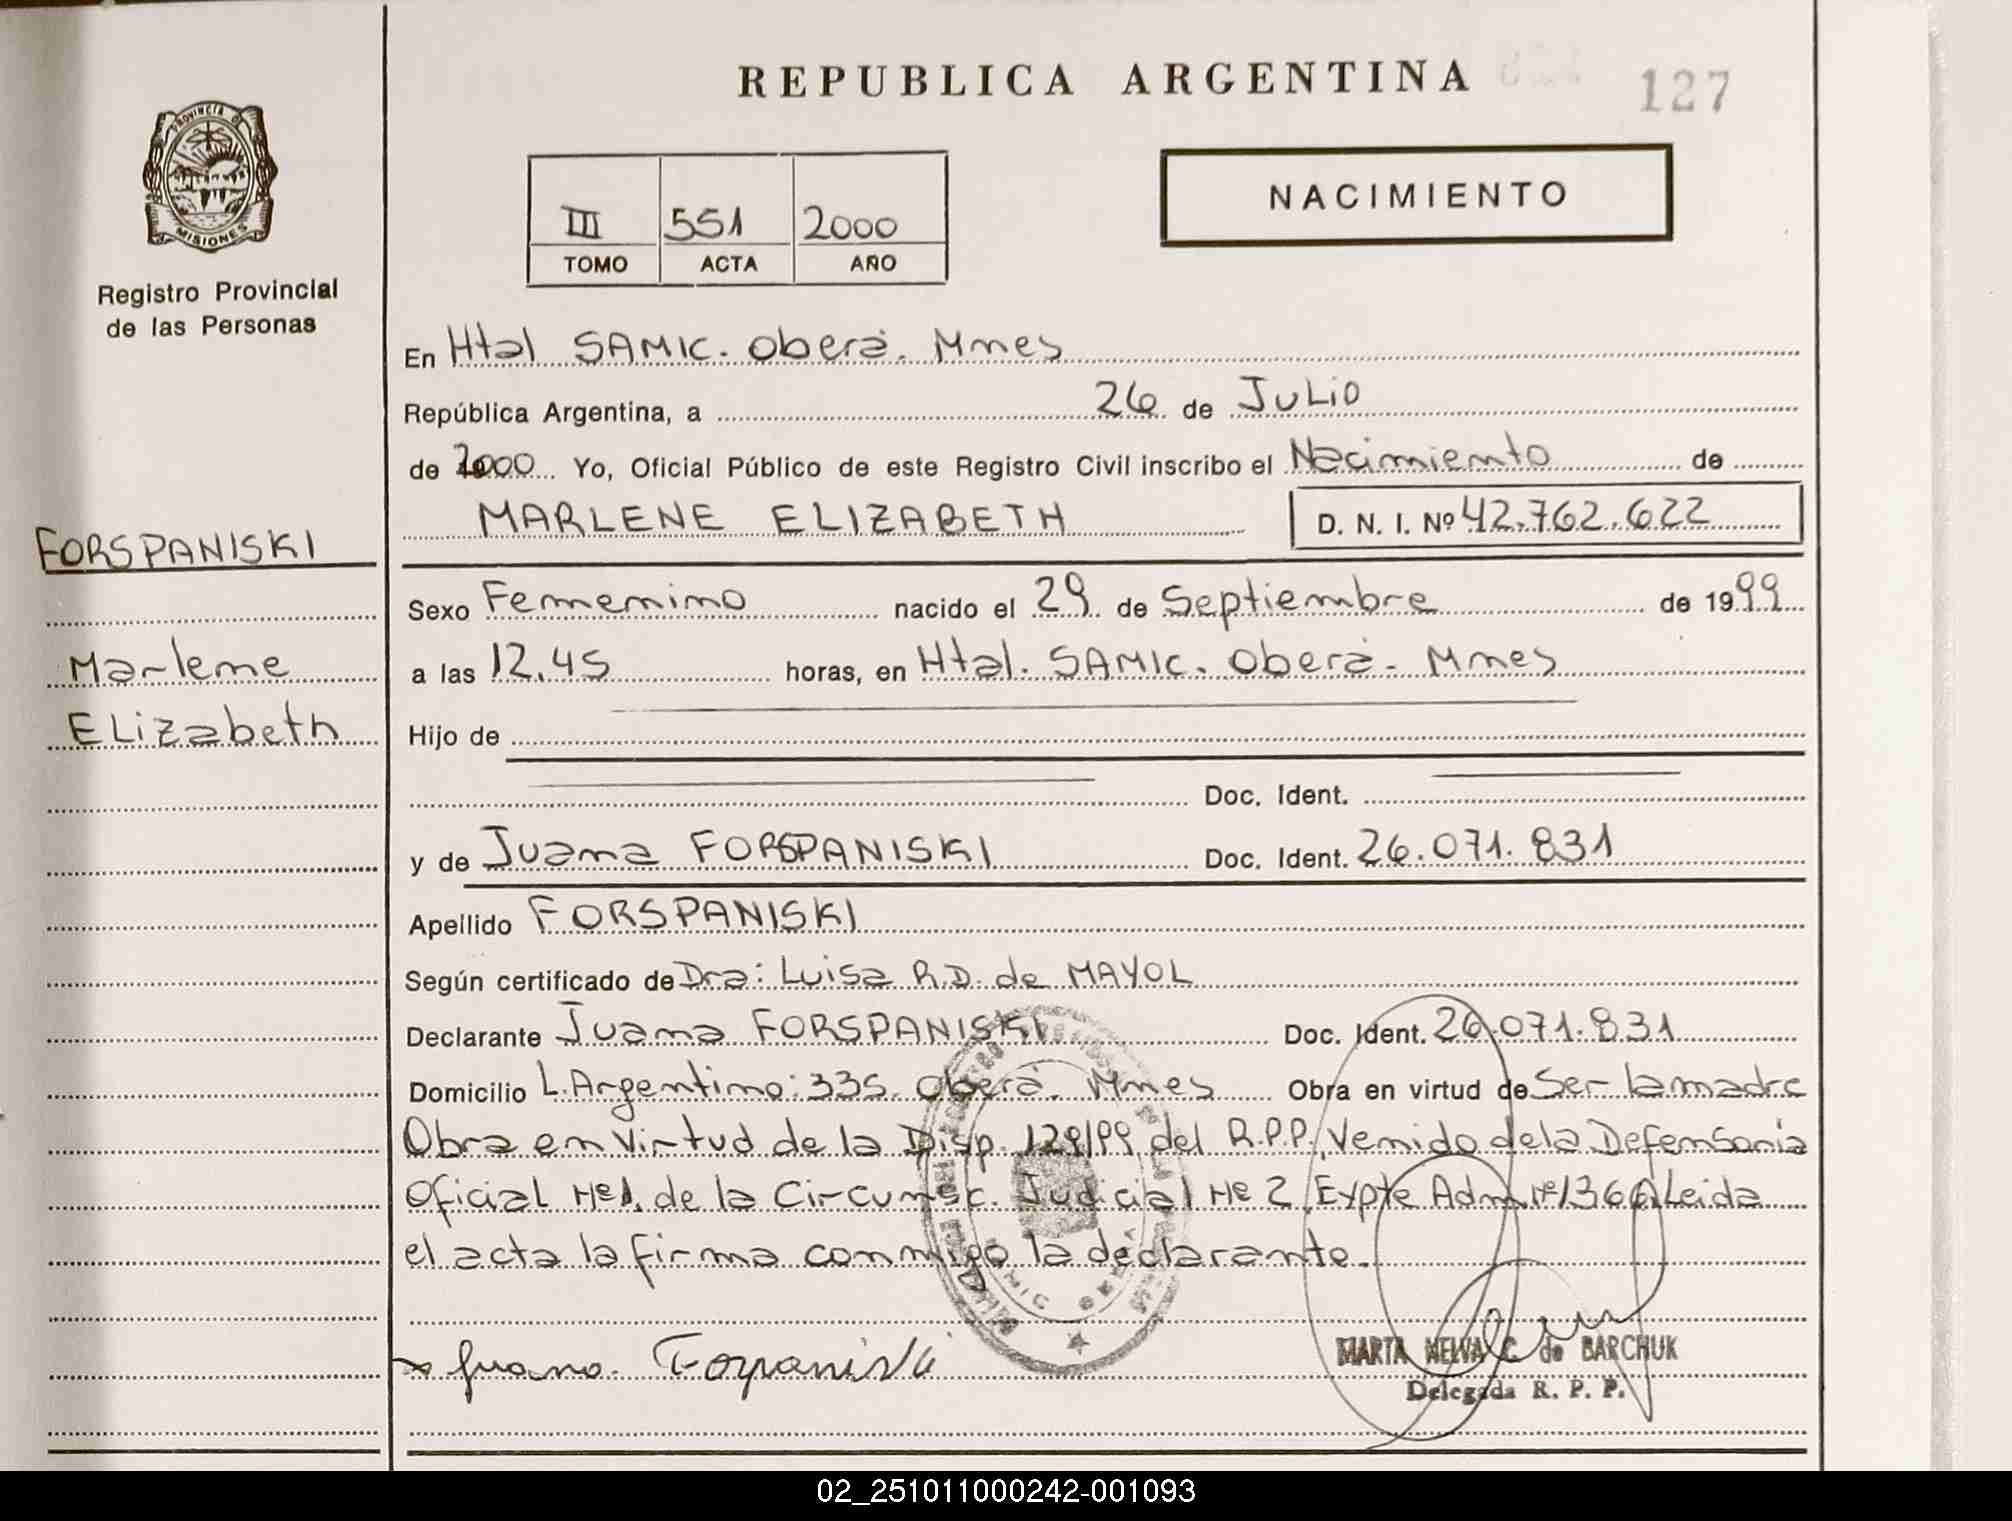 REPUBLICA ARGENTINA
127
PROVINCIA DE
MISIONES
Registro Provincial
de las Personas
NACIMIENTO
III 551 2000
TOMO ACTA AÑO
En Htal SAMIC. Oberá. Mnes
República Argentina, a 26 de Julio
de 2000 Yo, Oficial Público de este Registro Civil inscribo el Nacimiento de
MARLENE ELIZABETH D. N. I. Nº 42.762.622
FORSPANISKI
Marlene
Elizabeth
Sexo Femenino nacido el 29 de Septiembre de 1999
a las 12.45 horas, en Htal. SAMIC. Oberá. Mnes
Hijo de
Doc. Ident.
y de Juana FORSPANISKI Doc. Ident. 26.071.831
Apellido FORSPANISKI
Según certificado de Dra: Luisa R.D. de MAYOL
Declarante Juana FORSPANISKI Doc. Ident. 26.071.831
Domicilio L.Argentino: 335. Oberá. Mnes Obra en virtud de Ser la madre
Obra en virtud de la Disp. 129/99 del R.P.P. Venido de la Defensoría
Oficial Nº1. de la Circunsc. Judicial Nº 2 Expte Adm. Nº 1366 Leida
el acta la firma conmigo la declarante.
Juana Forpaniski
MARTA NELVA C. de BARCHUK
Delegada R. P. P.
02_251011000242-001093